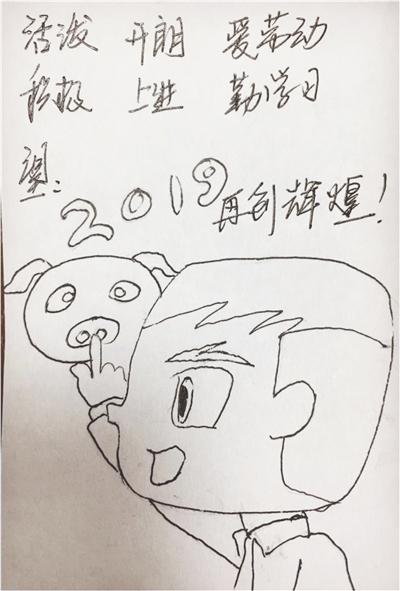 活泼 开朗 爱劳动
积极 上进 勤学习
望:
2019 再创辉煌!